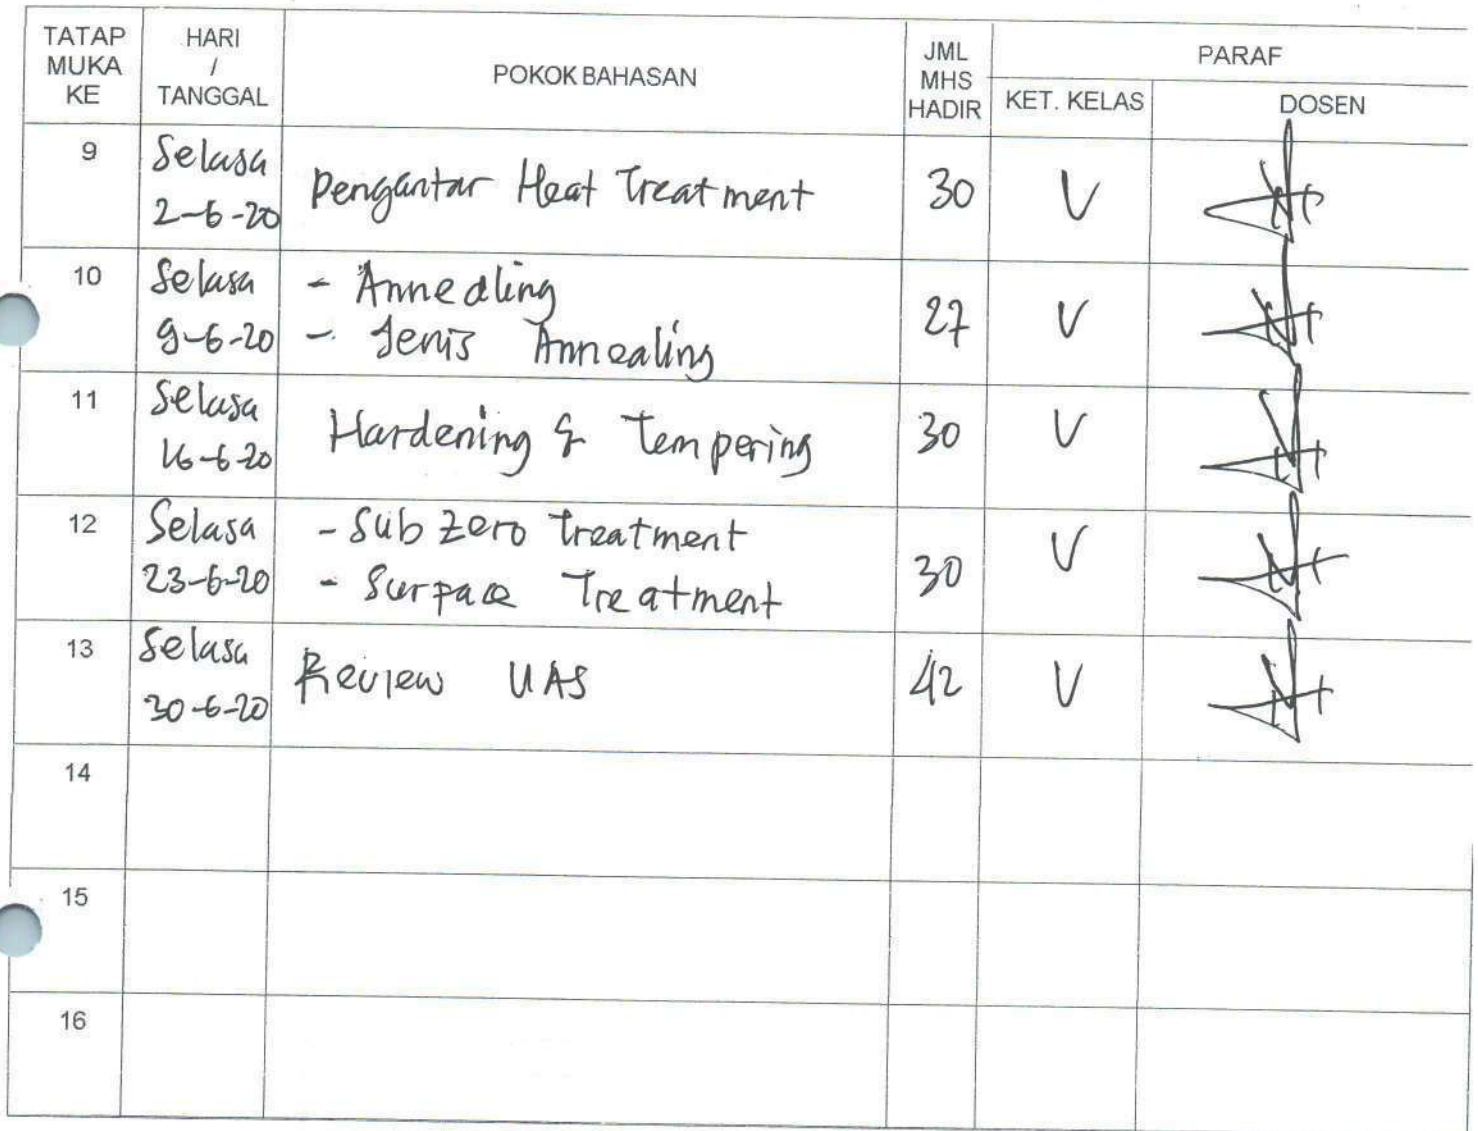 TATAP MUKA KE
HARI / TANGGAL
POKOK BAHASAN
JML MHS HADIR
PARAF
KET. KELAS
DOSEN
9
Selasa
2-6-20
Pengantar Heat Treatment
30
V
10
Selasa
9-6-20
- Annealing
- Jenis Annealing
27
V
11
Selasa
16-6-20
Hardening & Tempering
30
V
12
Selasa
23-6-20
- Sub Zero Treatment
- Surpace Treatment
30
V
13
Selasa
30-6-20
Review UAS
42
V
14
15
16